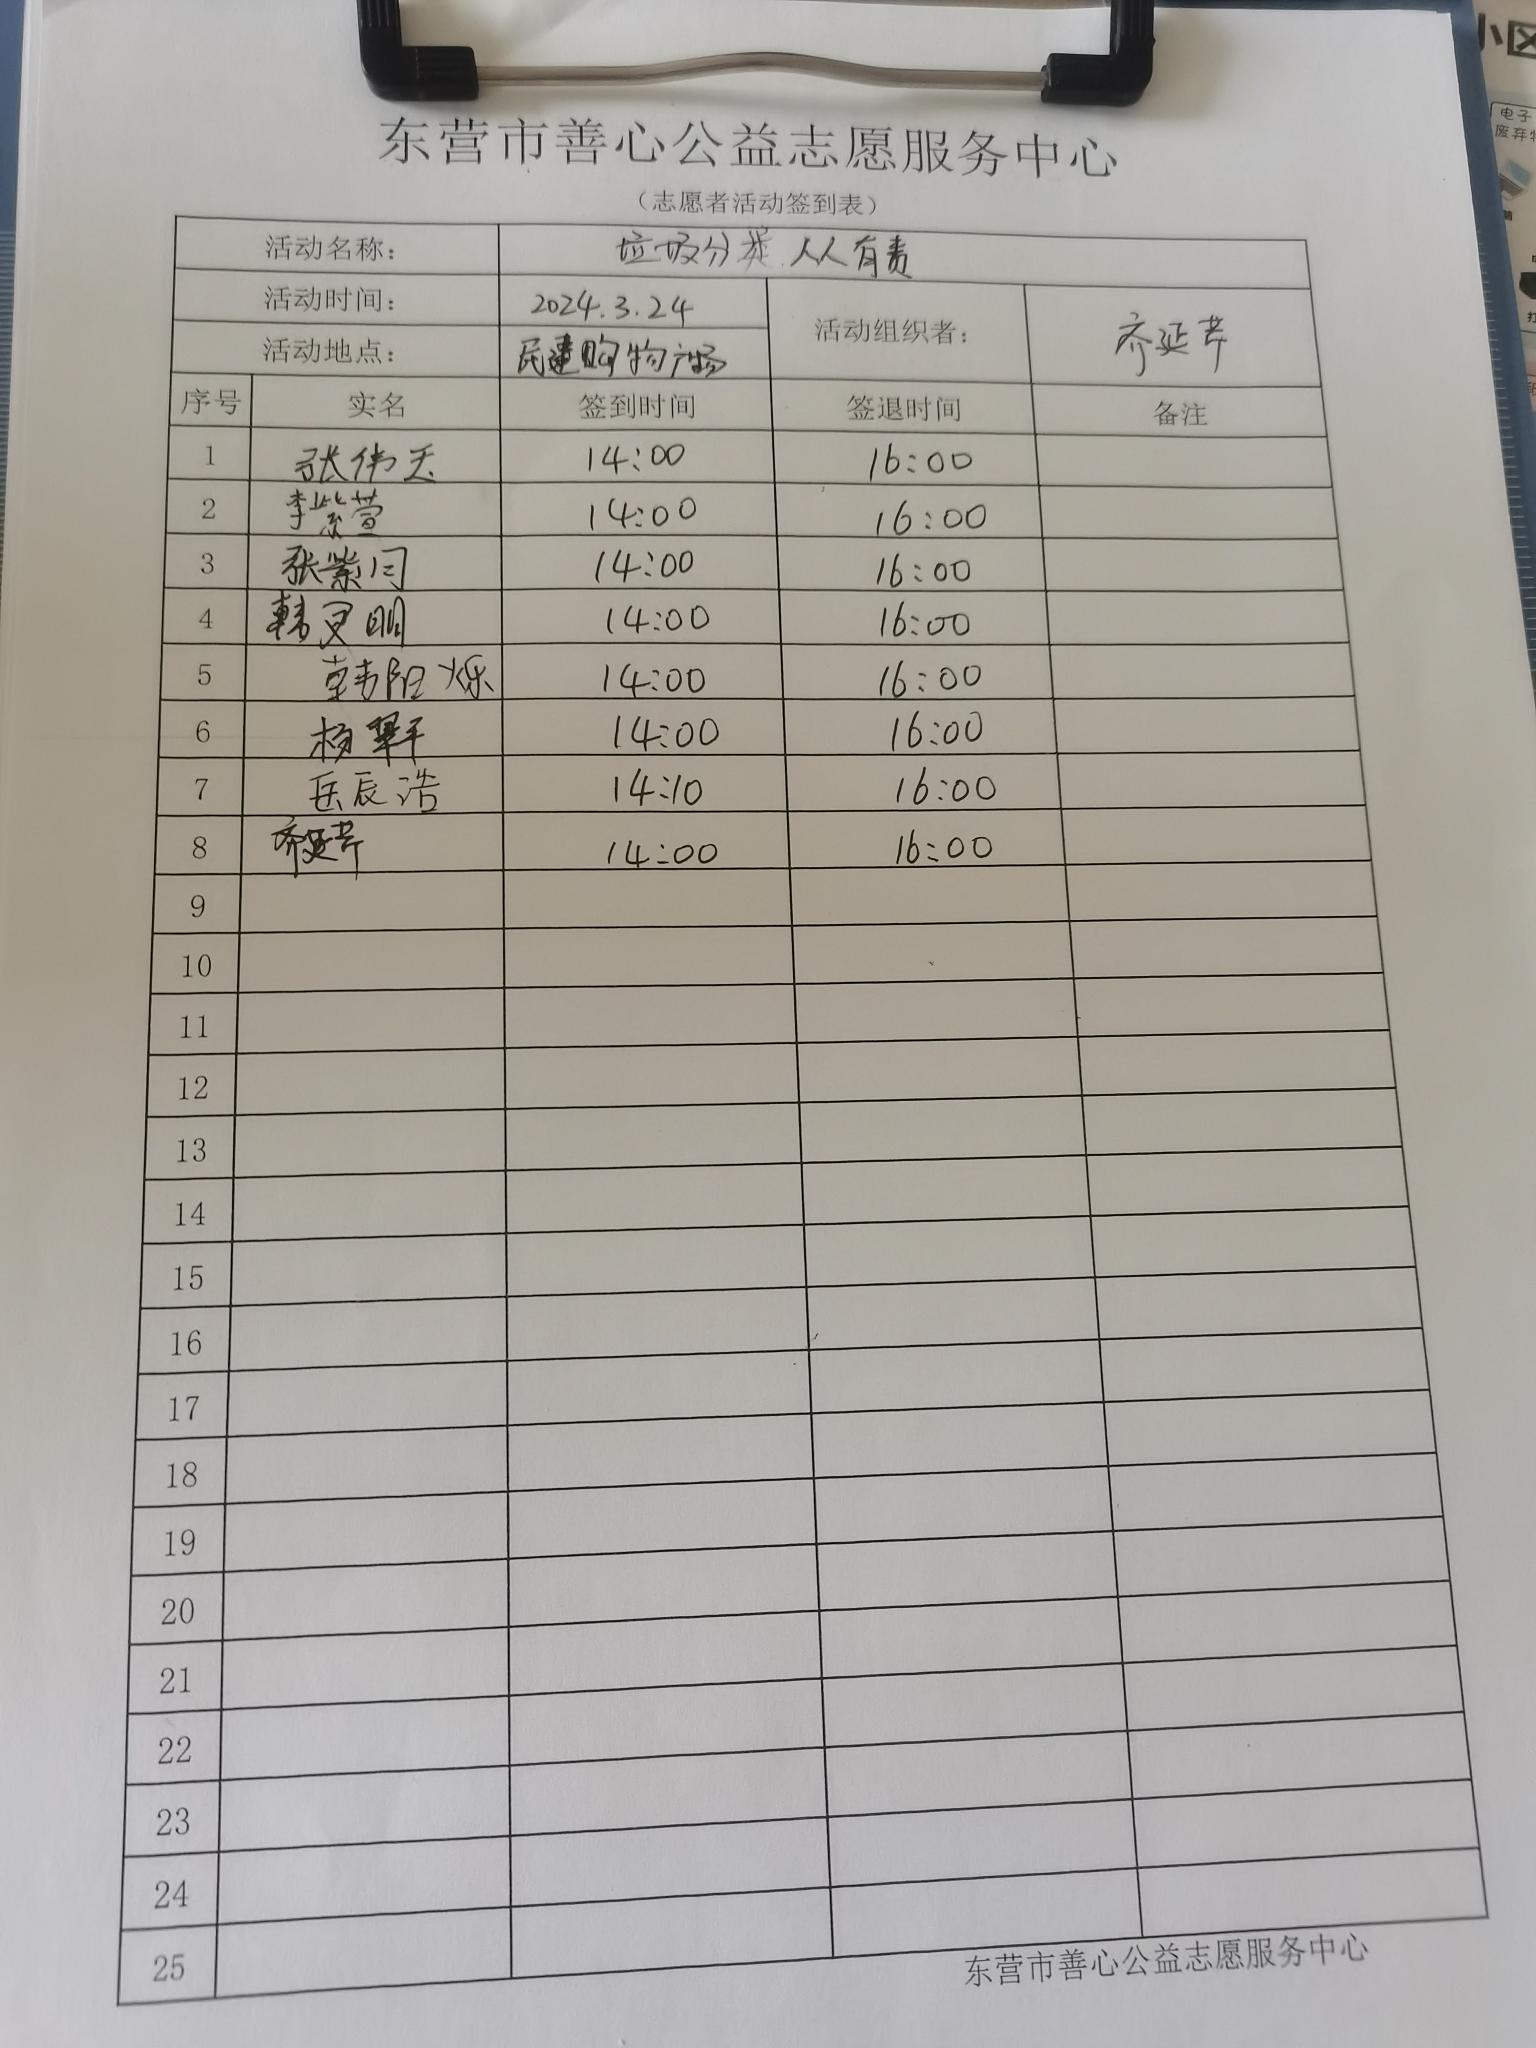 东营市善心公益志愿服务中心
（志愿者活动签到表）
活动名称： 垃圾分类 人人有责
活动时间： 2024.3.24 活动组织者： 齐延芹
活动地点： 民建购物广场
序号 实名 签到时间 签退时间 备注
1 张伟天 14:00 16:00
2 李紫萱 14:00 16:00
3 张紫闫 14:00 16:00
4 韩灵明 14:00 16:00
5 韩阳烁 14:00 16:00
6 杨 14:00 16:00
7 岳辰浩 14:10 16:00
8 齐延芹 14:00 16:00
9
10
11
12
13
14
15
16
17
18
19
20
21
22
23
24
25
东营市善心公益志愿服务中心
小区
电子
废弃物